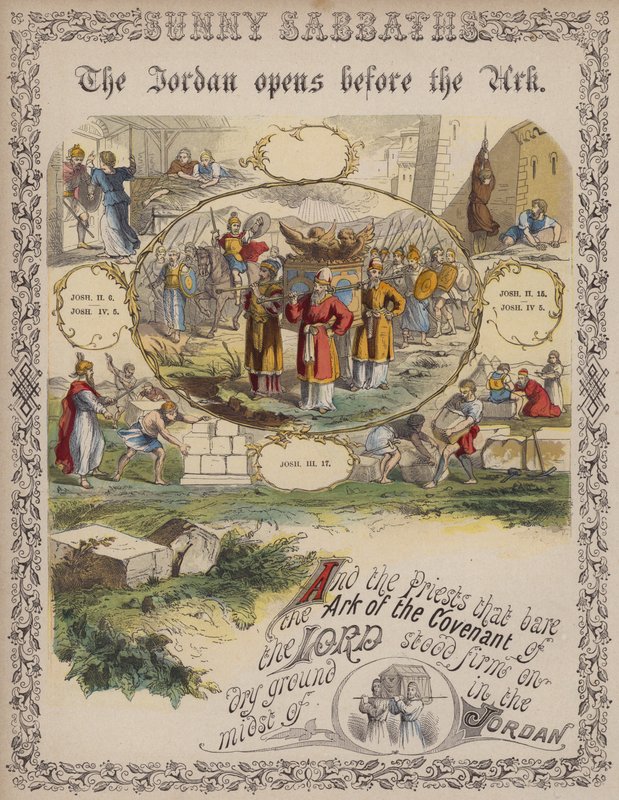 SUNNY SABBATHS
The Jordan opens before the Ark.
JOSH. II. 6.
JOSH. IV. 5.
JOSH. II. 15.
JOSH. IV 5.
JOSH. III. 17.
And the Priests that bare
the Ark of the Covenant of
the LORD stood firm on
dry ground in the
midst of JORDAN